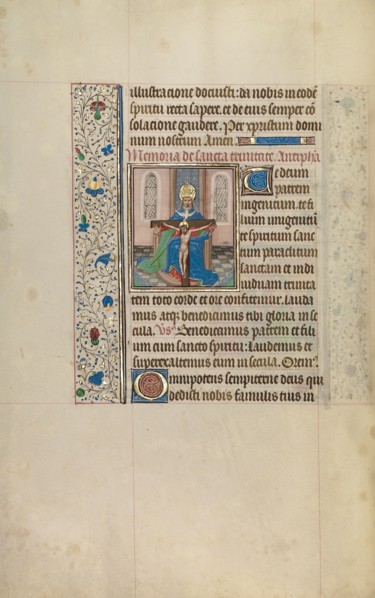 illustracione docuisti: da nobis in eodē
spiritu recta sapere. et de eius semper cō
solacione gaudere. Per xpristum domi
num nostrum Amen.
Memoria de sancta trinitate. Antipha
Te deum
patrem
ingenitum. te fi
lium unigenitū
te spiritum sanc
tum paraclitum
sanctam et indi
uiduam trinita
tem toto corde et ore confitemur. lauda
mus atqz benedicimus tibi gloria in se
cula. Vs. Benedicamus patrem et fili
um cum sancto spiritu: Laudemus et
superexaltemus eum in secula. Orem9
Omnipotens sempiterne deus qui
dedisti nobis famulis tuis in